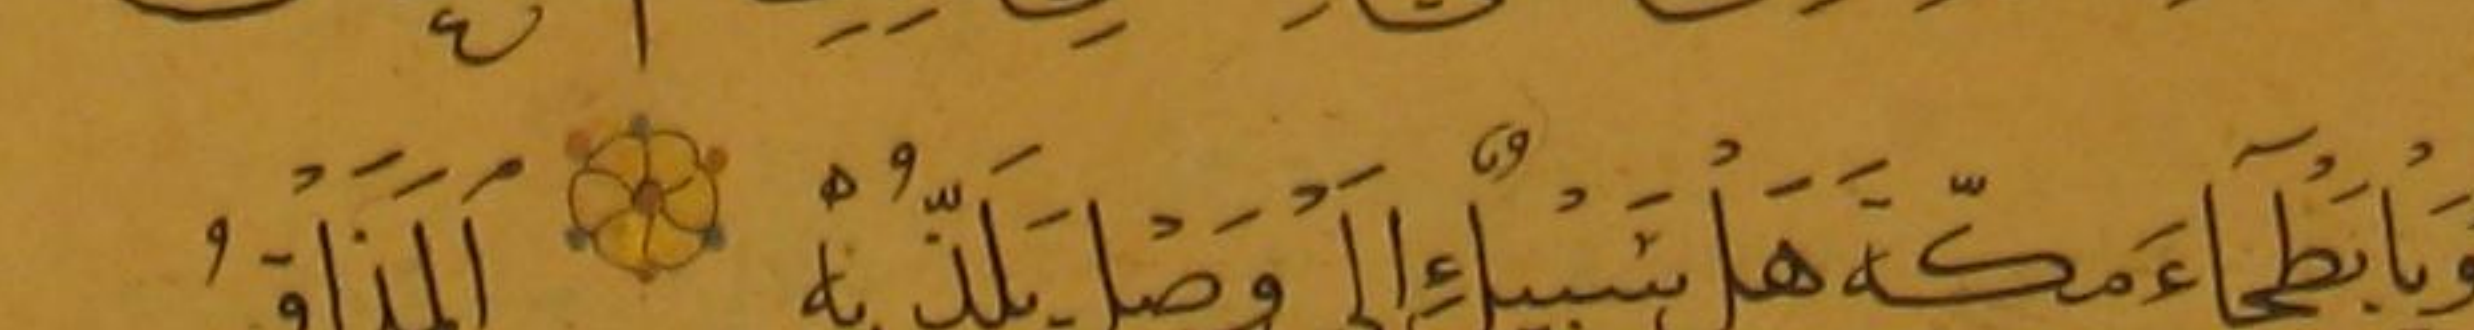 وَيَا بَطْحَآءَ مَكَّةَ هَلْ سَبِيْلٌ إِلَى وَصْلٍ يَلَذُّ بِهْ الْمَذَاقُ